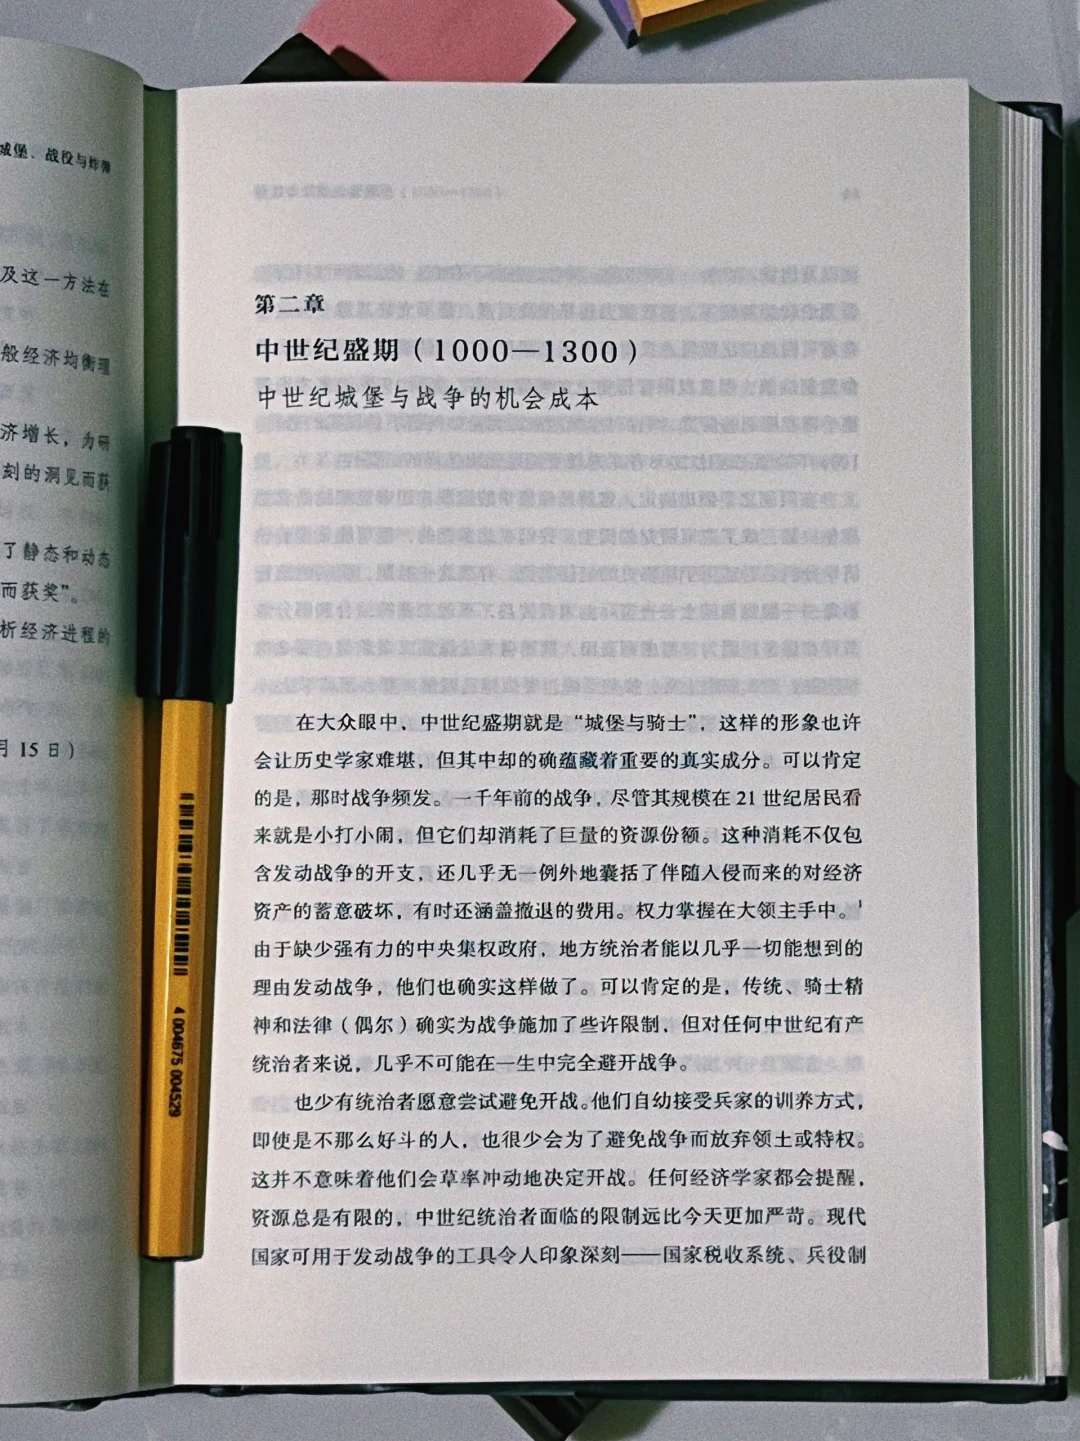 城堡、战役与炸弹
及这一方法在
般经济均衡理
济增长，为研
刻的洞见而获
了静态和动态
而获奖”。
析经济进程的
月 15 日）
第二章
中世纪盛期（1000—1300）
中世纪城堡与战争的机会成本
在大众眼中，中世纪盛期就是“城堡与骑士”，这样的形象也许
会让历史学家难堪，但其中却的确蕴藏着重要的真实成分。可以肯定
的是，那时战争频发。一千年前的战争，尽管其规模在 21 世纪居民看
来就是小打小闹，但它们却消耗了巨量的资源份额。这种消耗不仅包
含发动战争的开支，还几乎无一例外地囊括了伴随入侵而来的对经济
资产的蓄意破坏，有时还涵盖撤退的费用。权力掌握在大领主手中。1
由于缺少强有力的中央集权政府，地方统治者能以几乎一切能想到的
理由发动战争，他们也确实这样做了。可以肯定的是，传统、骑士精
神和法律（偶尔）确实为战争施加了些许限制，但对任何中世纪有产
统治者来说，几乎不可能在一生中完全避开战争。
也少有统治者愿意尝试避免开战。他们自幼接受兵家的训养方式，
即使是不那么好斗的人，也很少会为了避免战争而放弃领土或特权。
这并不意味着他们会草率冲动地决定开战。任何经济学家都会提醒，
资源总是有限的，中世纪统治者面临的限制远比今天更加严苛。现代
国家可用于发动战争的工具令人印象深刻——国家税收系统、兵役制
4 004675 004529